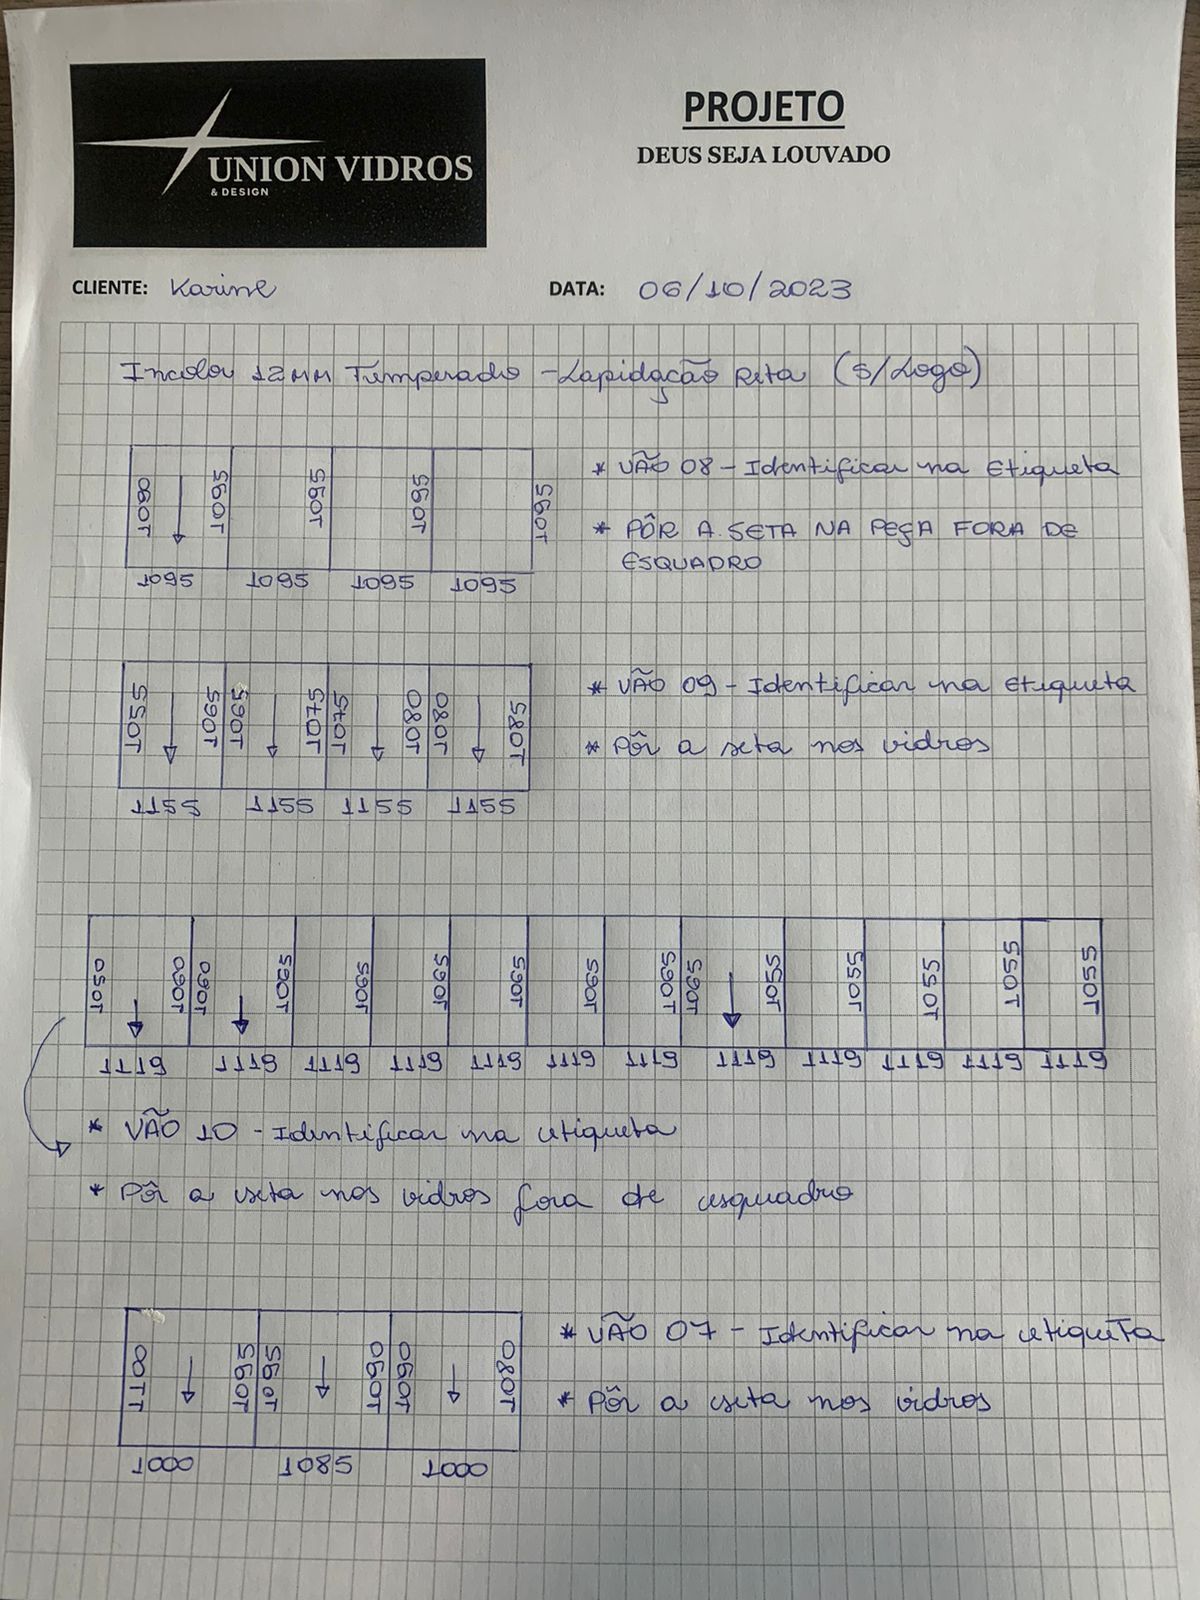 UNION VIDROS
& DESIGN
PROJETO
DEUS SEJA LOUVADO
CLIENTE: Karine
DATA: 06/10/2023
Incolor 12MM Temperado - Lapidação Reta (s/Logo)
1080 1095 1095 1095 1095
1095 1095 1095 1095
* VÃO 08 - Identificar na Etiqueta
* PÔR A SETA NA PEÇA FORA DE
ESQUADRO
1055 1065 1065 1075 1075 1080 1080 1085
1155 1155 1155 1155
* VÃO 09 - Identificar na Etiqueta
* Pôr a seta nos vidros
1050 1060 1060 1065 1065 1065 1065 1065 1065 1065 1055 1055 1055 1055 1055
1119 1119 1119 1119 1119 1119 1119 1119 1119 1119 1119 1119
* VÃO 10 - Identificar na etiqueta
* Pôr a seta nos vidros fora de esquadro
1100 1095 1095 1090 1090 1080
1000 1085 1000
* VÃO 07 - Identificar na etiqueta
* Pôr a seta nos vidros